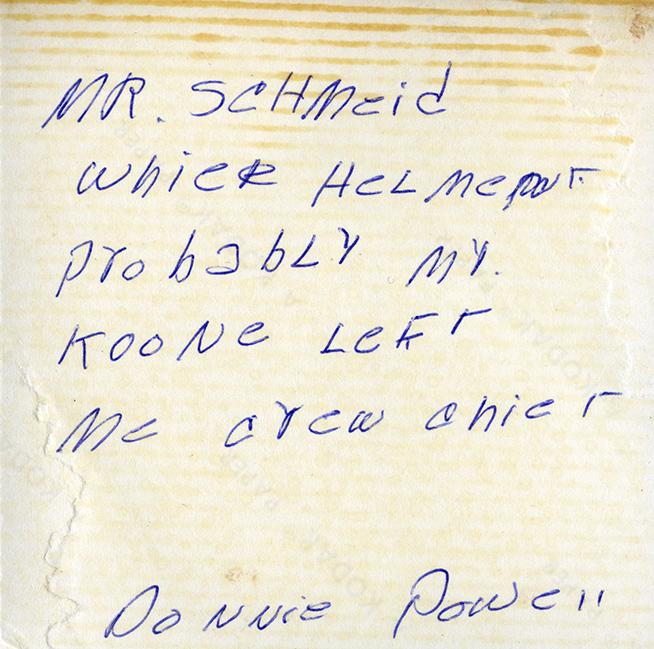 MR. SCHMeid
whier HeLMent
probably MY.
KOONe LeFT
Me crew chief
Donnie Powell